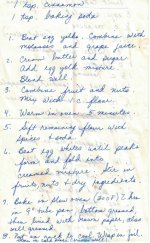 1 tsp. cinnamon
1 tsp. baking soda
1. Beat egg yolks. Combine with
molasses and grape juice
2. Cream butter and sugar
Add egg yolk mixture
Blend well
3. Combine fruit and nuts
with ½ c. flour.
4. Warm in oven 5 minutes.
5. Sift remaining flour with
spices + soda.
6. Beat egg whites until peaks
form and fold into
creamed mixture. Stir in
fruits, nuts + dry ingredients
7. Bake in slow oven (300F) 2 hrs
in 9" tube pan, bottom ground,
lined with paper, also
well greased.
8. to cool. Wrap in foil